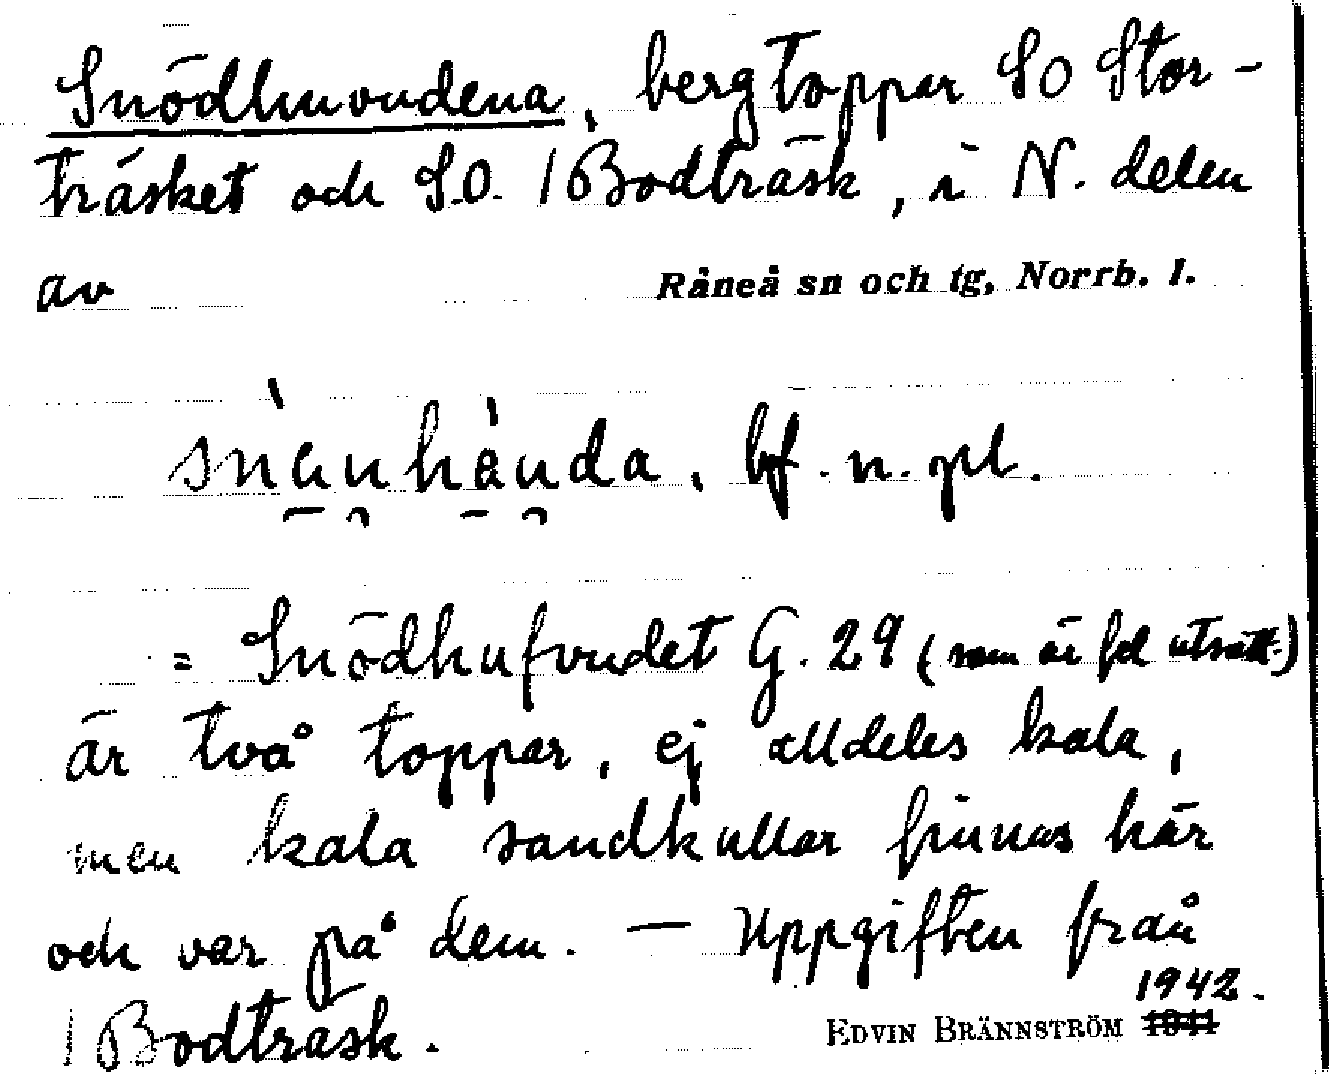 Snödhuvudena, bergtoppar SO Stor-
träsket och S.O. /Bodträsk, i N. delen
av Råneå sn och tg, Norrb. l.
snauhauda, bf. n. pl.
= Snödhufvudet G. 29 (som är fel utsatt)
är två toppar, ej alldeles kala,
men kala sandkullar finnas här
och var på dem. — Uppgiften från
/Bodträsk.
1942.
EDVIN BRÄNNSTRÖM 1941